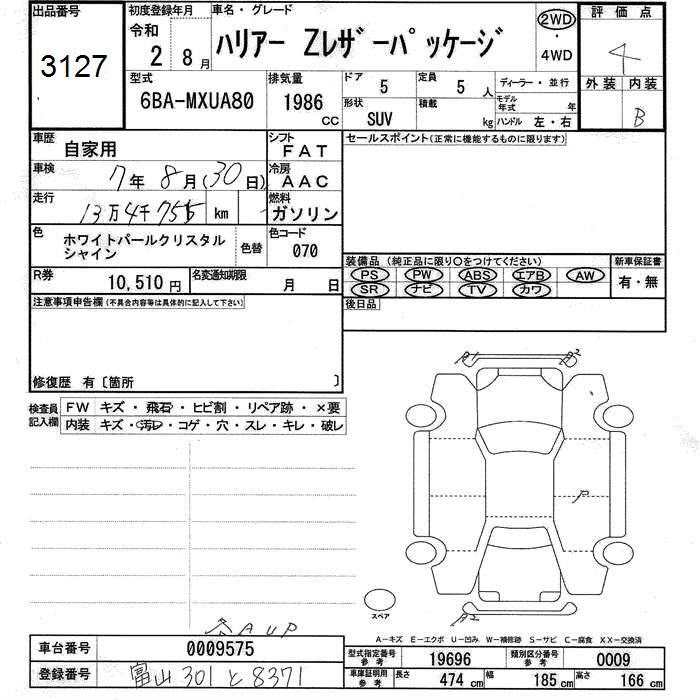 出品番号
3127
初度登録年月
令和
2 8月
車名・グレード
ハリアー Zレザーパッケージ
2WD
・
4WD
評価点
4
外装 内装
B
型式
6BA-MXUA80
排気量
1986
CC
ドア
5
定員
5 人
形状
SUV
積載
kg
ディーラー・並行
モデル年式 年
ハンドル 左・右
車歴
自家用
シフト
FAT
車検
7年8月(30日)
冷房
AAC
走行
13万4千755 km
燃料
ガソリン
色
ホワイトパールクリスタル
シャイン
色替
色コード
070
R券
10,510円
名変通知期限
月 日
セールスポイント(正常に機能するものに限ります)
装備品 (純正品に限り〇をつけてください)
PS PW ABS エアB AW
SR ナビ TV カワ
新車保証書
有・無
後日品
注意事項申告欄(不具合内容等は具体的に記入して下さい)
修復歴 有〔箇所 〕
検査員
記入欄
FW キズ・飛石・ヒビ割・リペア跡・×要
内装 キズ・汚レ・コゲ・穴・スレ・キレ・破レ
A1
A2
A2
スペア
A-キズ E-エクボ U-凹み W-補修跡 S-サビ C-腐食 XX-交換済
AUP
車台番号
0009575
登録番号
富山301と8371
型式指定番号
参考
19696
類別区分番号
参考
0009
車庫証明用
参考
長さ
474 cm
幅
185 cm
高さ
166 cm